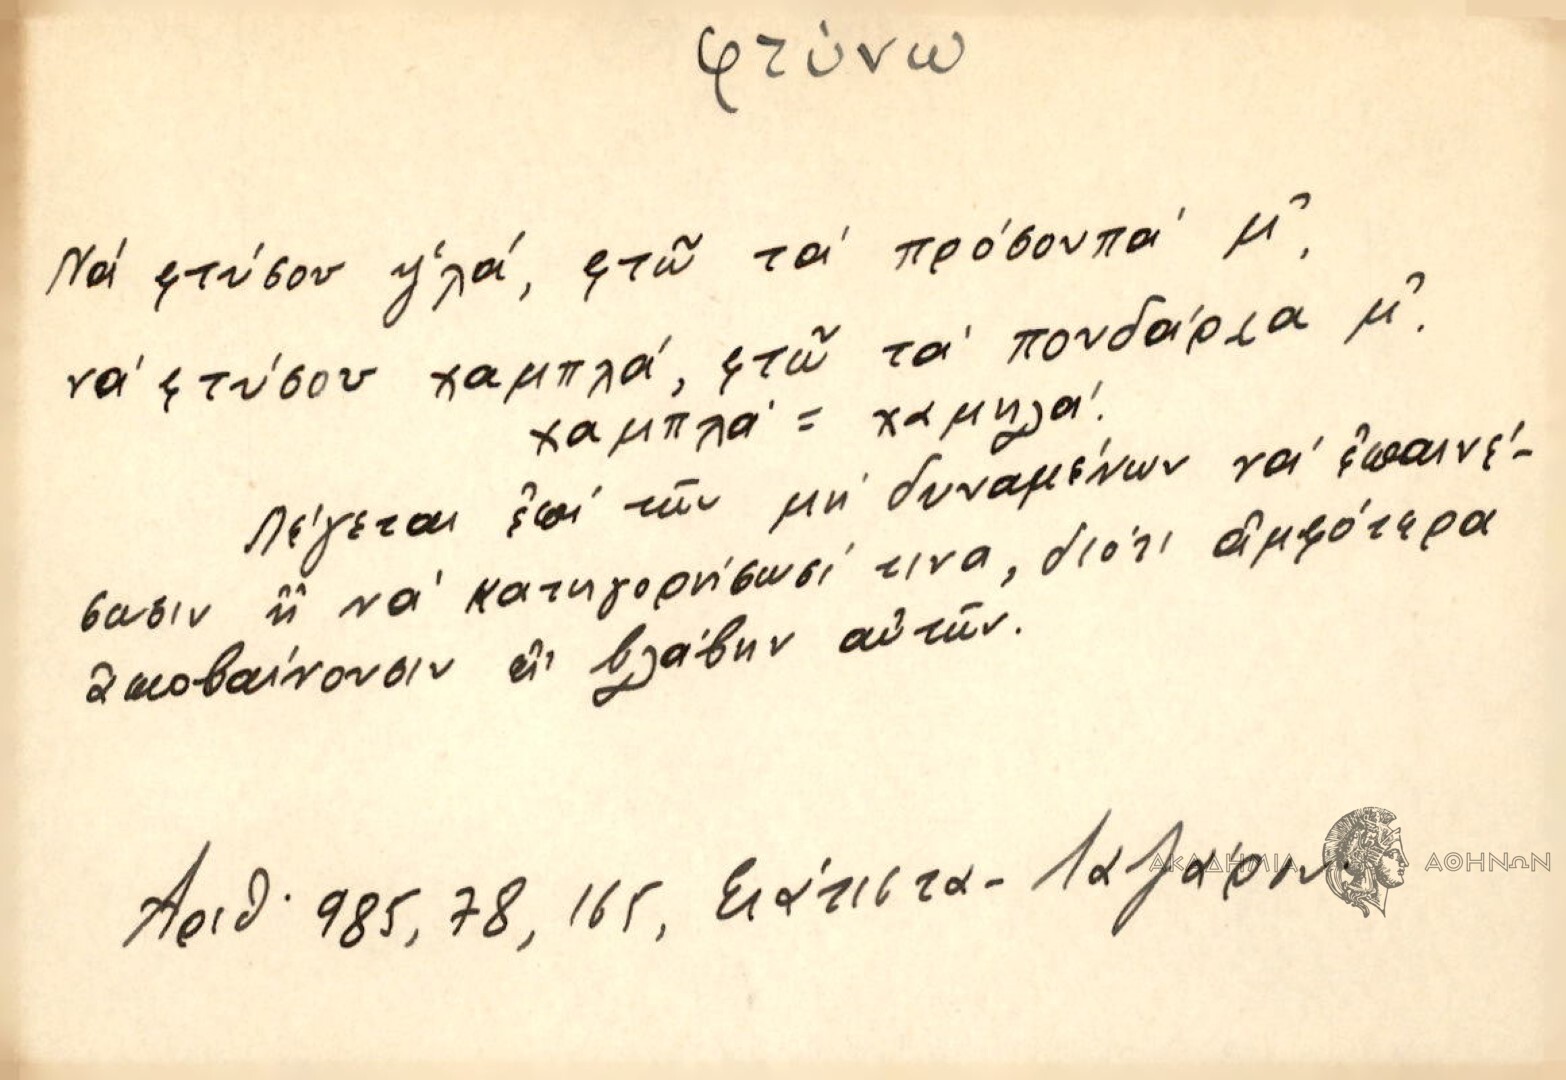 φτύνω
Νά φτύσου ψ'λά, φτῶ τά πρόσουπά μ',
νά φτύσου χαμπλά, φτῶ τά πουδάρια μ'.
χαμπλά = χαμηλά.
Λέγεται ἐπί τῶν μή δυναμένων νά ἐπαινέ-
σωσιν ἤ νά κατηγορήσωσί τινα, διότι ἀμφότερα
ἀποβαίνουσιν εἰς βλάβην αὐτῶν.
Ἀριθ. 985, 78, 165, Σιάτιστα - Λαζάρου
ΑΚΑΔΗΜΙΑ ΑΘΗΝΩΝ